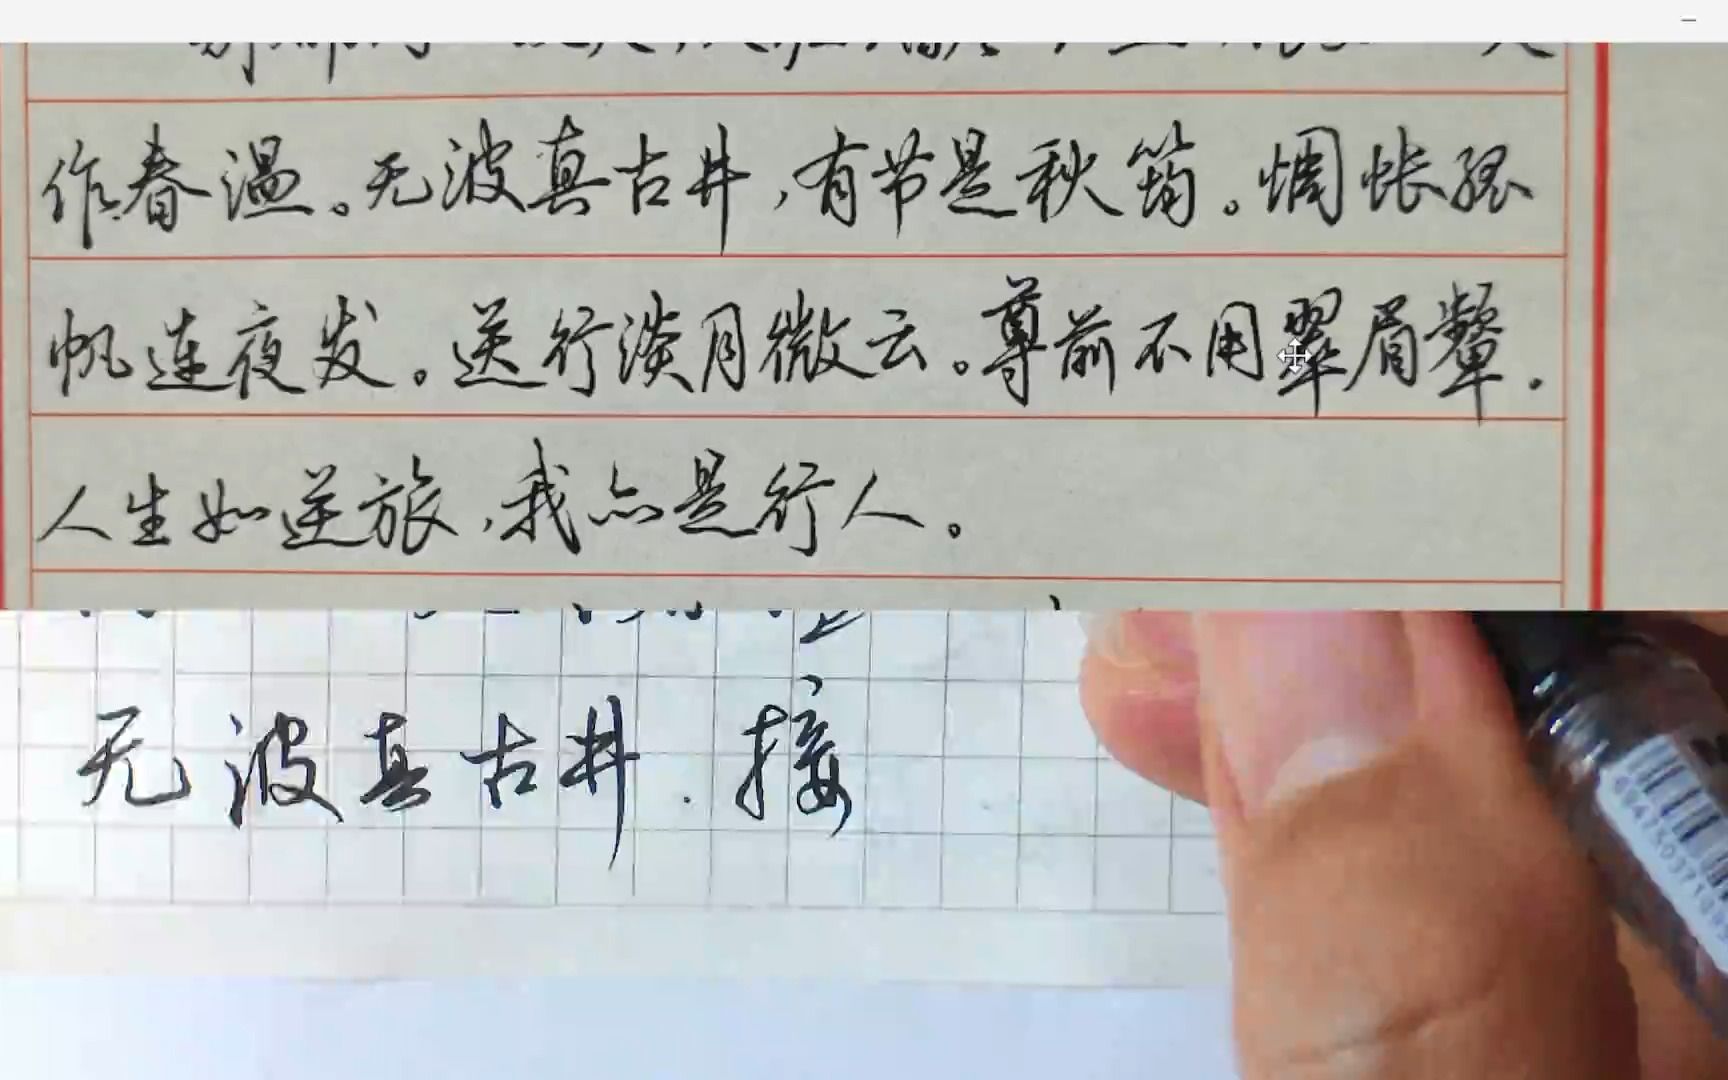 作春温。无波真古井，有节是秋筠。惆怅孤
帆连夜发。送行淡月微云。尊前不用翠眉颦.
人生如逆旅，我亦是行人。
无波真古井.接